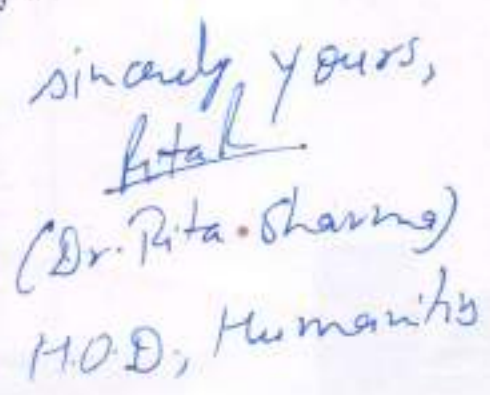 sincerely yours,
(Dr. Rita. Sharma)
H.O.D, Humanities